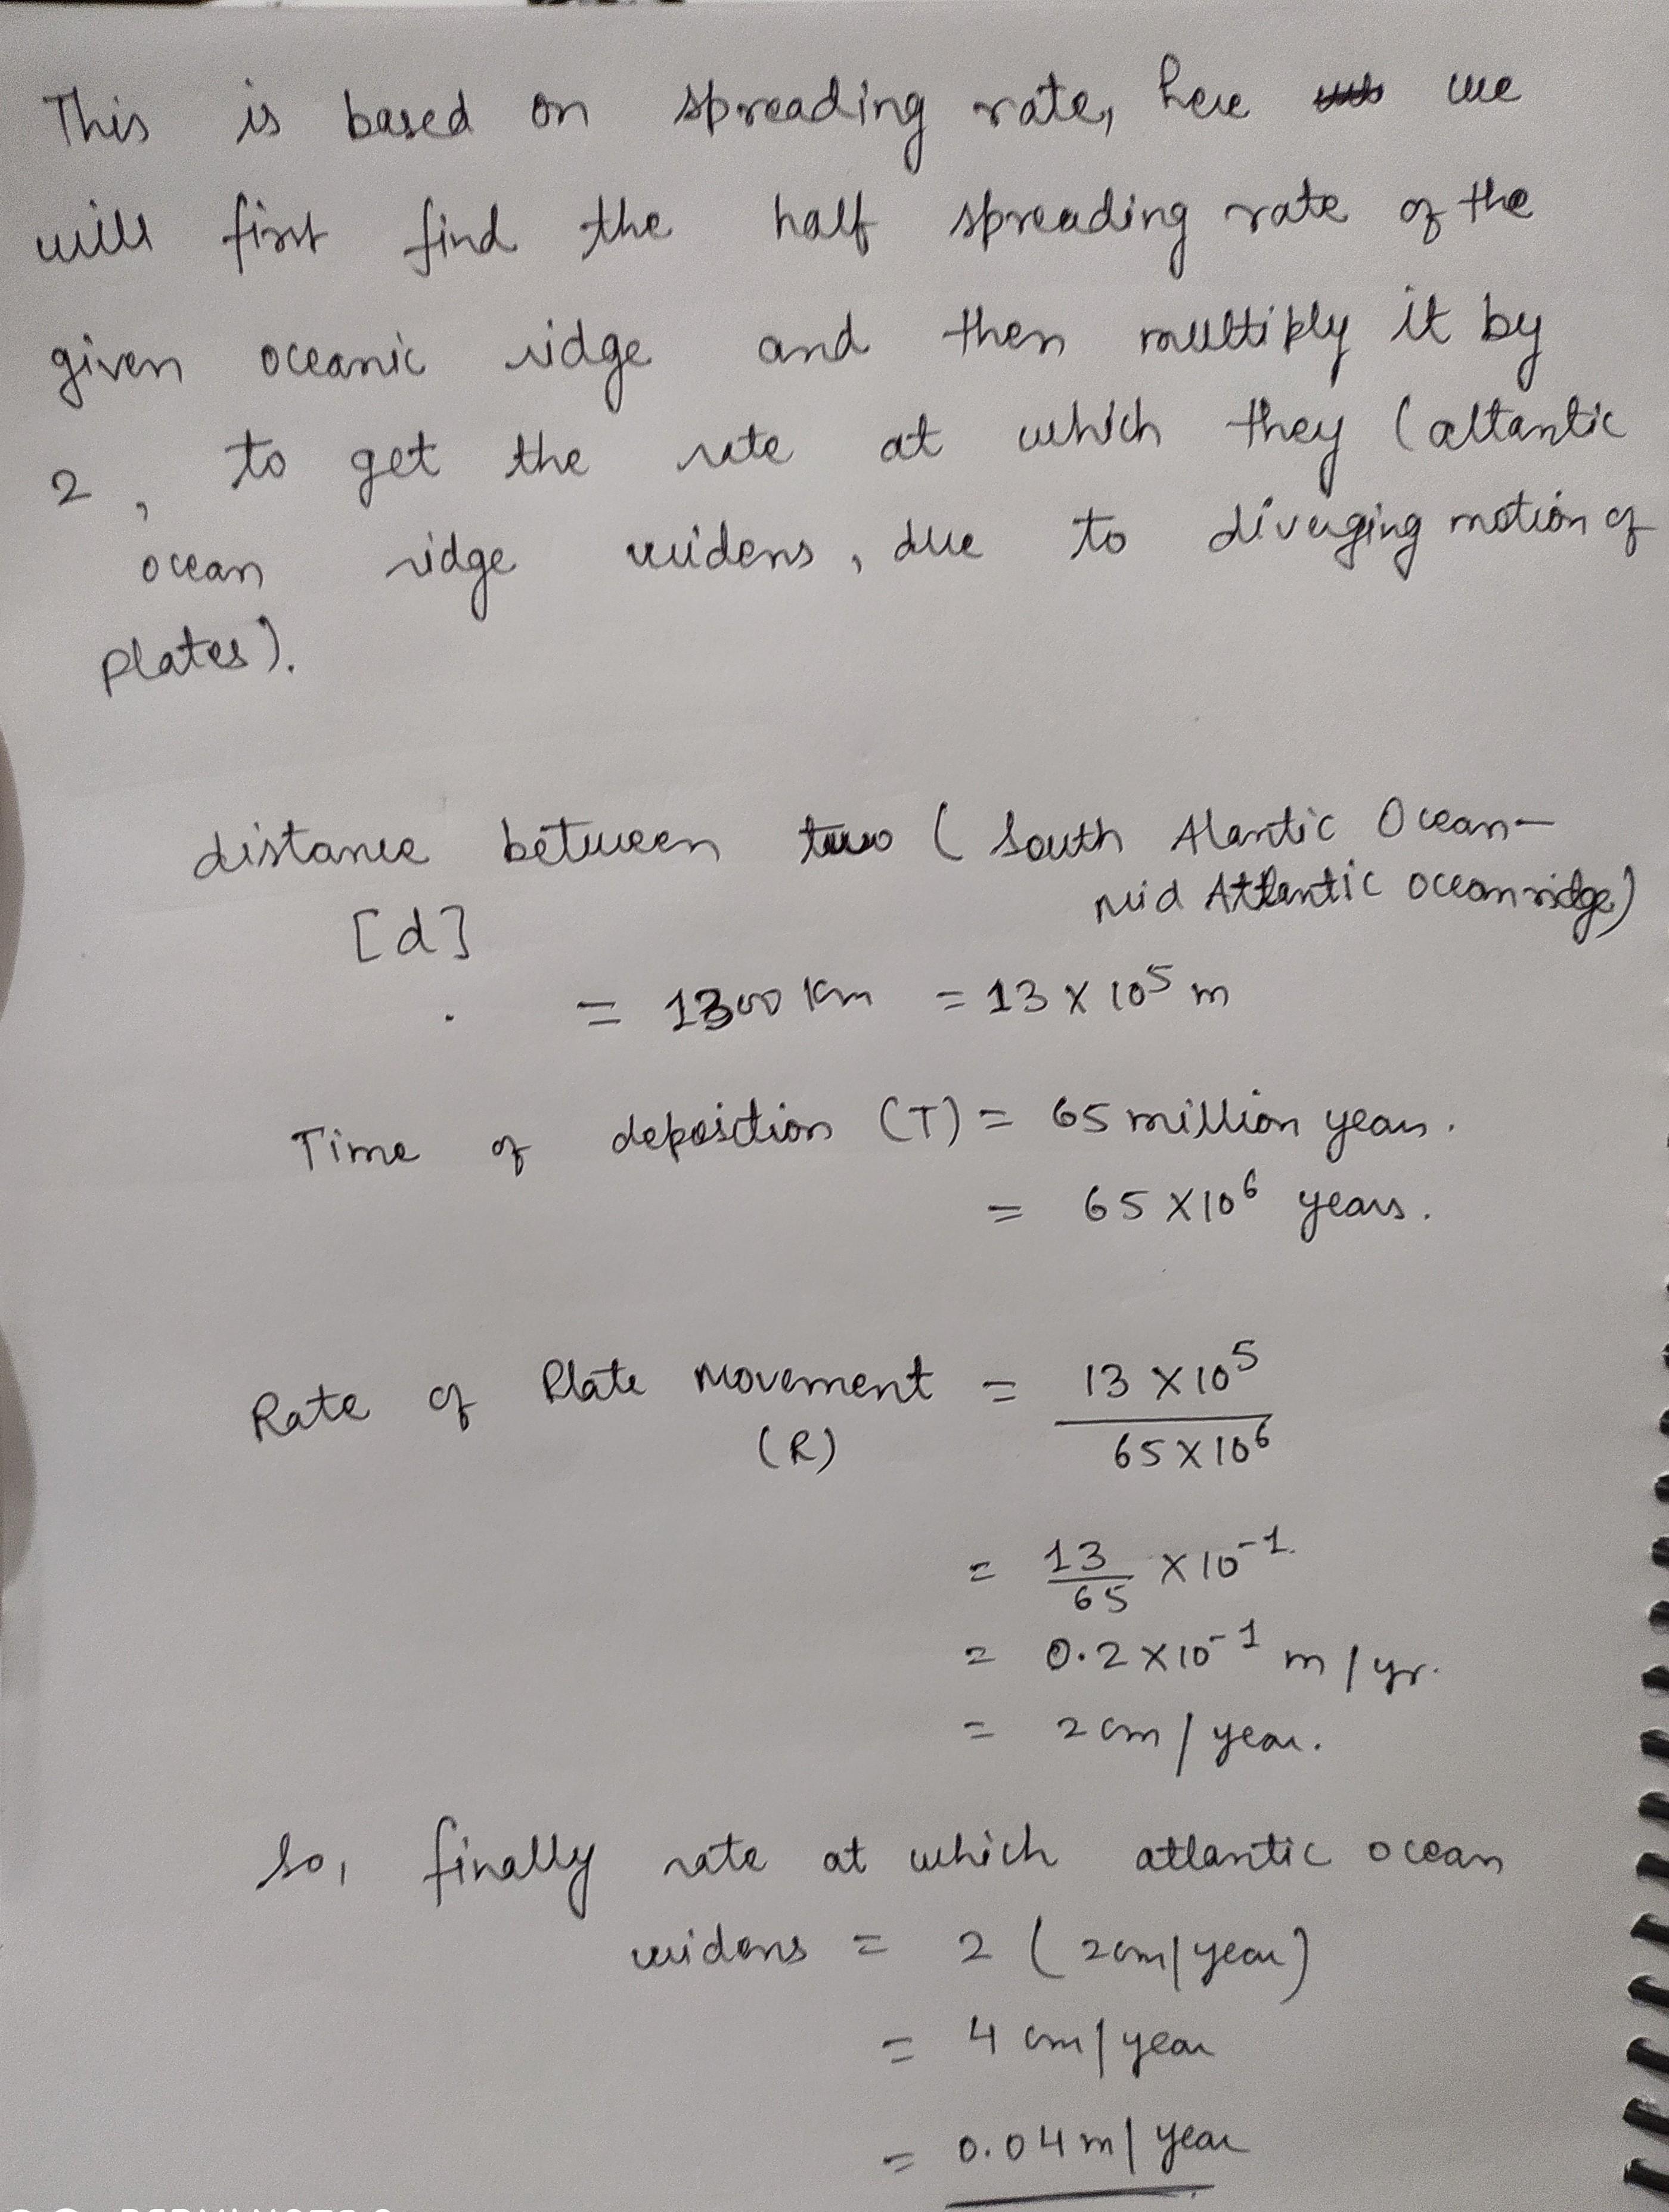 This is based on spreading rate, here we
will first find the half spreading rate of the
given oceanic ridge and then multiply it by
2, to get the rate at which they (altantic
ocean ridge widens, due to diverging motion of
plates).
distance between two (South Alantic Ocean-
Mid Atlantic ocean ridge)
[d]
= 1300 km = 13 × 10⁵ m
Time of deposition (T) = 65 million years.
= 65 × 10⁶ years.
Rate of Plate Movement = 13 × 10⁵
(R) 65 × 10⁶
= 13/65 × 10⁻¹
= 0.2 × 10⁻¹ m/yr.
= 2 cm/year.
So, finally rate at which atlantic ocean
widens = 2 (2cm/year)
= 4 cm/year
= 0.04 m/year